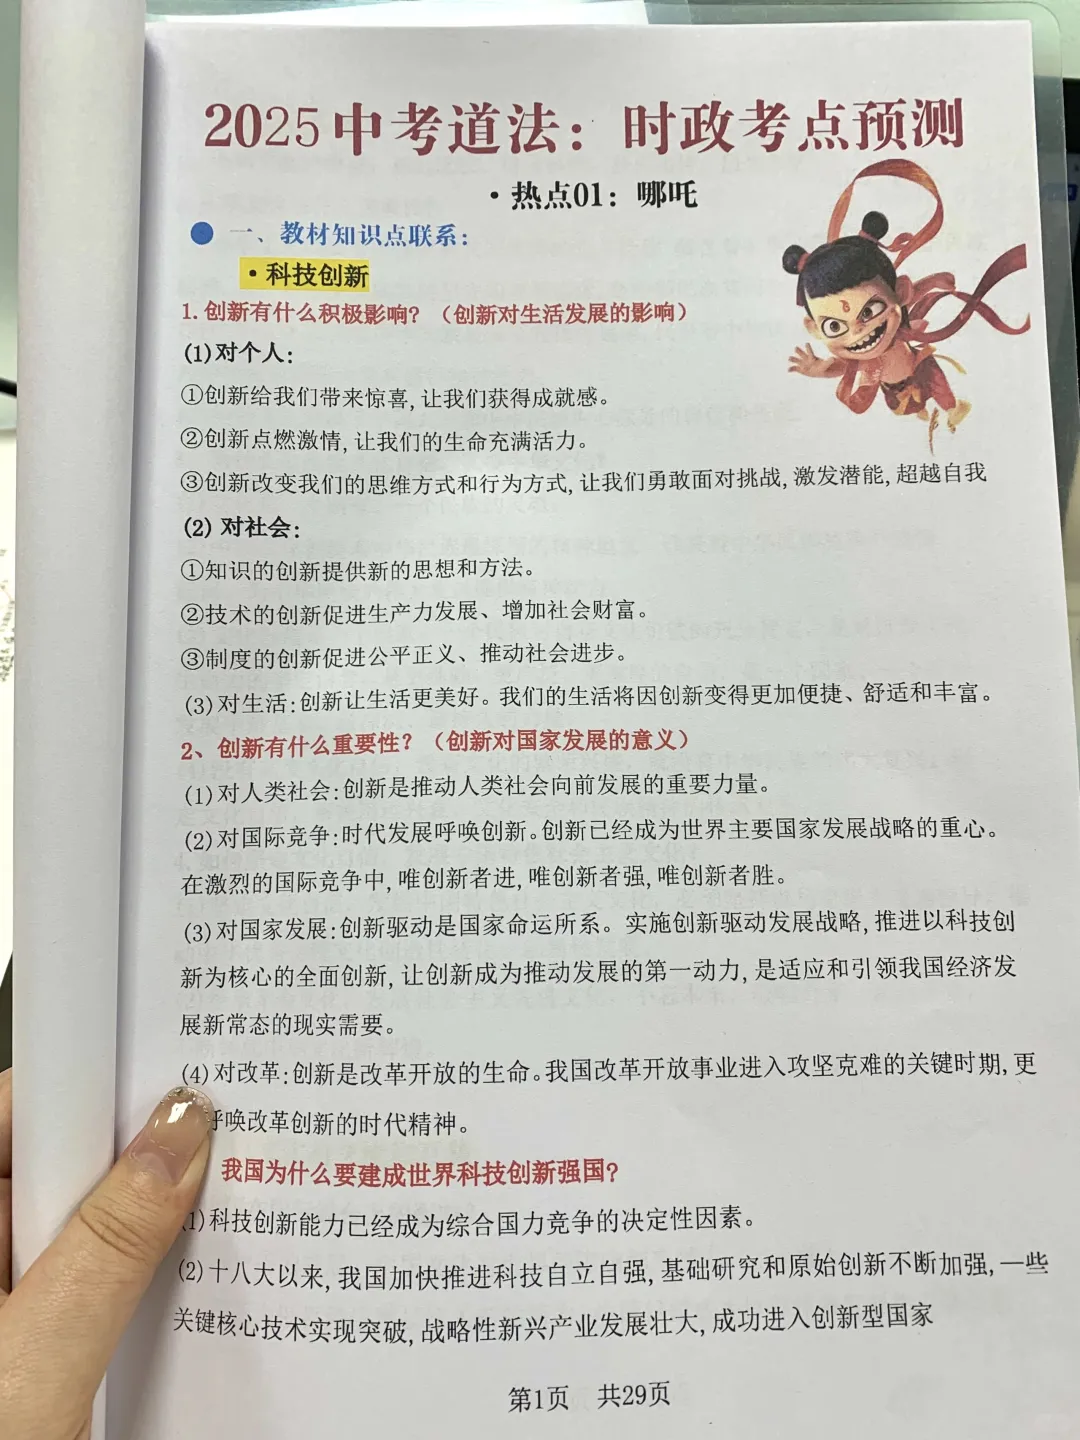 2025中考道法：时政考点预测
·热点01：哪吒
一、教材知识点联系：
·科技创新
1.创新有什么积极影响？（创新对生活发展的影响）
(1)对个人：
①创新给我们带来惊喜,让我们获得成就感。
②创新点燃激情,让我们的生命充满活力。
③创新改变我们的思维方式和行为方式,让我们勇敢面对挑战,激发潜能,超越自我
(2)对社会：
①知识的创新提供新的思想和方法。
②技术的创新促进生产力发展、增加社会财富。
③制度的创新促进公平正义、推动社会进步。
(3)对生活:创新让生活更美好。我们的生活将因创新变得更加便捷、舒适和丰富。
2、创新有什么重要性？（创新对国家发展的意义）
(1)对人类社会:创新是推动人类社会向前发展的重要力量。
(2)对国际竞争:时代发展呼唤创新。创新已经成为世界主要国家发展战略的重心。
在激烈的国际竞争中,唯创新者进,唯创新者强,唯创新者胜。
(3)对国家发展:创新驱动是国家命运所系。实施创新驱动发展战略,推进以科技创
新为核心的全面创新,让创新成为推动发展的第一动力,是适应和引领我国经济发
展新常态的现实需要。
(4)对改革:创新是改革开放的生命。我国改革开放事业进入攻坚克难的关键时期,更
呼唤改革创新的时代精神。
我国为什么要建成世界科技创新强国?
1)科技创新能力已经成为综合国力竞争的决定性因素。
(2)十八大以来,我国加快推进科技自立自强,基础研究和原始创新不断加强,一些
关键核心技术实现突破,战略性新兴产业发展壮大,成功进入创新型国家
第1页 共29页